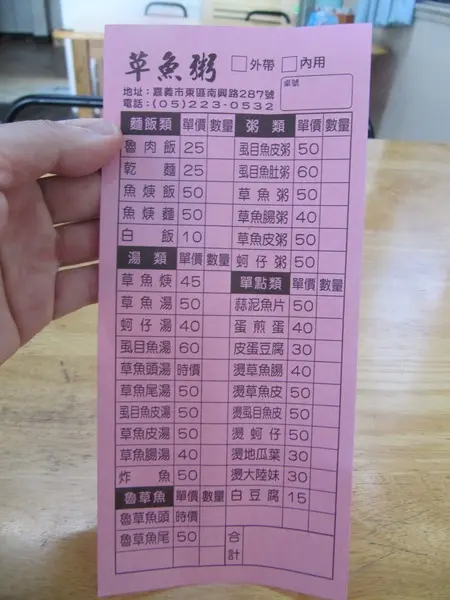 草魚粥 □外帶 □內用
桌號
地址:嘉義市東區南興路287號
電話:(05)223-0532
麵飯類 單價 數量
魯肉飯 25
乾麵 25
魚焿飯 50
魚焿麵 50
白飯 10
湯類 單價 數量
草魚焿 45
草魚湯 50
蚵仔湯 40
虱目魚湯 60
草魚頭湯 時價
草魚尾湯 50
虱目魚皮湯 50
草魚皮湯 50
草魚腸湯 40
炸魚 50
魯草魚 單價 數量
魯草魚頭 時價
魯草魚尾 50
粥類 單價 數量
虱目魚皮粥 50
虱目魚肚粥 60
草魚粥 50
草魚腸粥 40
草魚皮粥 50
蚵仔粥 50
單點類 單價 數量
蒜泥魚片 50
蛋煎蛋 40
皮蛋豆腐 30
燙草魚腸 40
燙草魚皮 50
燙虱目魚皮 50
燙蚵仔 50
燙地瓜葉 30
燙大陸妹 30
白豆腐 15
合計